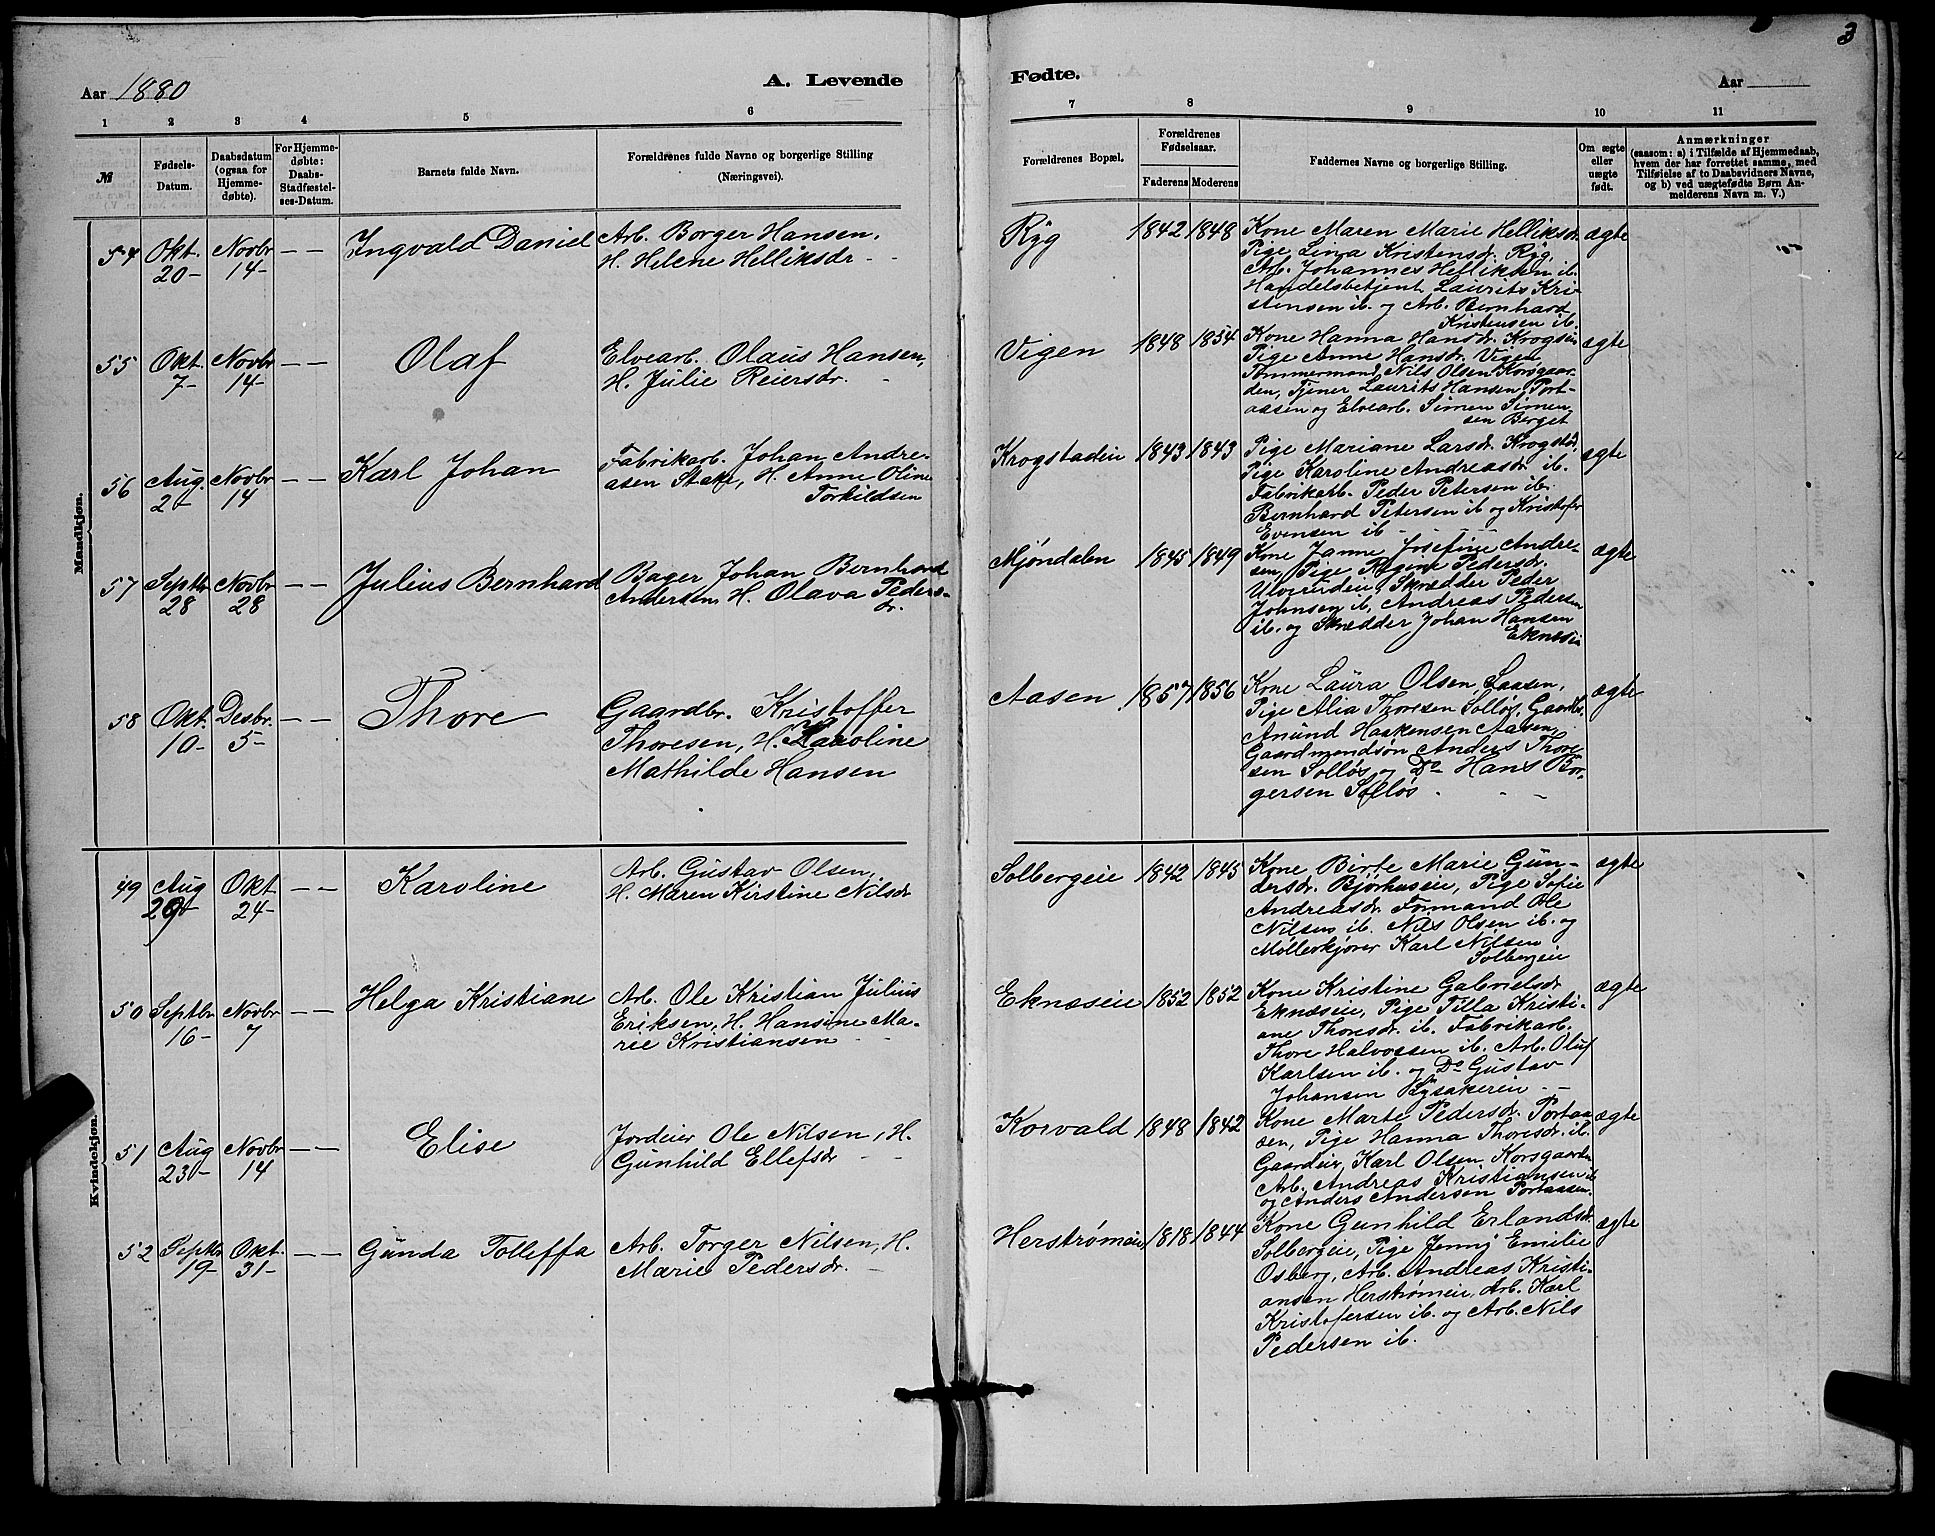 3
Aar 1880
A. Levende
Fødte.
Aar
1 2 3 4 5 6
7 8 9 10 11
№
Fødsels-
Datum.
Daabsdatum
(ogsaa for
Hjemme-
døbte).
For Hjemme-
døbte:
Daabs-
Stadfæstel-
ses-Datum.
Barnets fulde Navn.
Forældrenes fulde Navne og borgerlige Stilling
(Næringsvei).
Forældrenes Bopæl.
Forældrenes
Fødselsaar.
Faderens Moderens
Faddernes Navne og borgerlige Stilling.
Om ægte
eller
uægte
født.
Anmærkninger
(saasom: a) i Tilfælde af Hjemmedaab,
hvem der har forrettet samme, med
Tilføielse af to Daabsvidners Navne,
og b) ved uægtefødte Børn An-
melderens Navn m. V.)
Mandkjøn.
54
Okt.
20-
Novbr
14-
— —
Ingvald Daniel
Arb. Borger Hansen,
H. Helene Helliksdr
Ryg
1842 1848
Kone Maren Marie Helliksdr.
Pige Lina Kristensdr. Ryg,
Arb. Johannes Helliksen ib.
Handelsbetjent Laurits Kri-
stensen ib. og Arb. Bernhard
Kristensen ib.
ægte
55
Okt.
7-
Novbr
14-
— —
Olaf
Elvearb. Olaus Hansen,
H. Julie Reiersdr.
Vigen
1848 1854
Kone Hanna Hansdr. Krogsin
Pige Anne Hansdr. Vigen
Tømmermand Nils Olsen Korsgaar-
den, Tjener Laurits Hansen Port-
aasen og Elvearb. Simen Simen-
sen Berget
ægte
56
Aug.
2-
Novbr
14
— —
Karl Johan
Fabrikarb. Johan Andre-
asen Stake, H. Anne Oline
Torkildsen
Krogstadeie
1843 1843
Pige Mariane Larsdr. Krogstde
Pige Karoline Andreasdr ib.
Fabrikarb. Peder Petersen ib.
Bernhard Petersen ib og Kristofer
Evensen ib
ægte
57
Septbr
28
Novbr
28
— —
Julius Bernhard
Bager Johan Bernhard
Andersen, H. Olava Peders-
dr.
Mjøndalen
1845 1849
Kone Janne Josefine Andre-
sen, Pige Pedersdr.
Ulverudeie, Skrædder Peder
Johnsen ib, Andreas Pedersen
ib. og Skrædder Johan Hansen
Eknesie
ægte
58
Okt.
10-
Desbr.
5-
— —
Thore
Gaardbr. Kristoffer
Thoresen, H. Karoline
Mathilde Hansen
Aasen
1857 1856
Kone Laura Olsen Saasen,
Pige Alia Thoresen Solløs, Gaardb.
Anund Haakensen Aasen,
Gaardmandsøn Anders Thore-
sen Solløs og Do Hans Bor-
gersen Solløs
ægte
Kvindekjøn.
49
Aug
29-
Okt
24-
— —
Karoline
Arb. Gustav Olsen,
H. Maren Kirstine Nilsdr
Solbergeie
1842 1845
Kone Birte Marie Gun-
dersdr. Bjørhuseie, Pige Sofie
Andreasdr. Formand Ole
Nilsen ib. Nils Olsen ib. og
Møllerkjører Karl Nilsen
Solbergeie
ægte
50
Septbr
16-
Novbr
7
— —
Helga Kristiane
Arb. Ole Kristian Julius
Eriksen, H. Hansine Ma-
rie Kristiansen
Eknæseie
1852 1852
Kone Kristine Gabrielsdr
Eknæseie, Pige Tilla Kristi-
ane Thoresdr. ib. Fabrikarb.
Thore Halvorsen ib. Arb. Oluf
Karlsen ib. og Do Gustav
Johansen Rysakereie
ægte
51
Aug
23-
Novbr
14
— —
Elise
Jordeier Ole Nilsen, H.
Gunhild Ellefsdr
Korvald
1848 1842
Kone Marte Pedersdr. Portaa-
sen, Pige Hanna Thoresdr. ib.
Gaardeier Karl Olsen Korsgaarden
Arb. Andreas Kristiansen ib
og Anders Andersen Portaasen.
ægte
52
Septbr
19-
Okt.
31-
— —
Gunda Tolleffa
Arb. Torger Nilsen, H.
Marie Pedersdr.
Herstrømeie
1818 1844
Kone Gunhild Erlandsdr
Solbergeie, Pige Jenny Emilie
Osberg, Arb. Andreas Kristi-
ansen Herstrømeie, Arb. Karl
Kristofersen ib. og Arb. Nils
Pedersen ib.
ægte